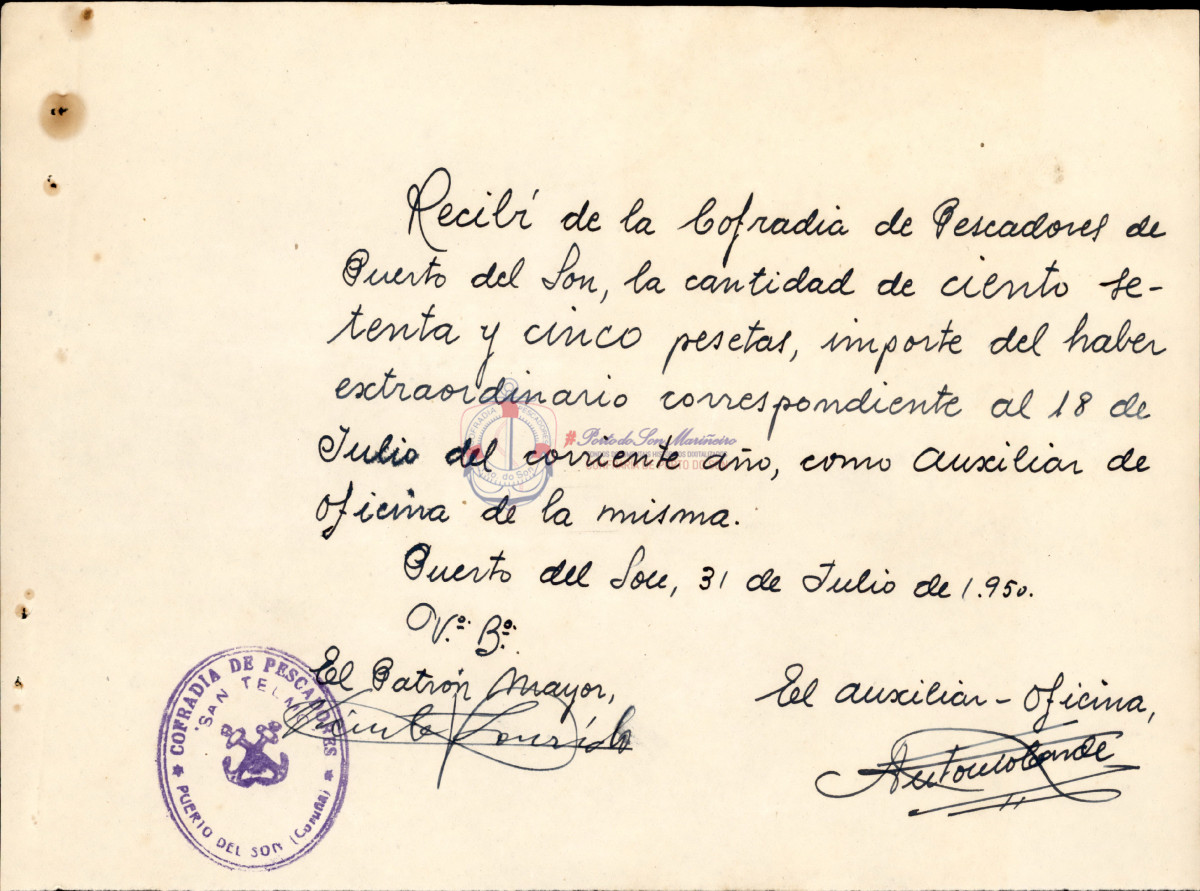 Recibí de la Cofradia de Pescadores de
Puerto del Son, la cantidad de ciento se-
tenta y cinco pesetas, importe del haber
extraordinario correspondiente al 18 de
Julio del corriente año, como auxiliar de
oficina de la misma.
Puerto del Son, 31 de Julio de 1.950.
V.º B.º
El Patrón Mayor,
El auxiliar-oficina,
COFRADIA DE PESCADORES
"SAN TELMO"
PUERTO DEL SON (Coruña)
# Porto do Son Mariñeiro